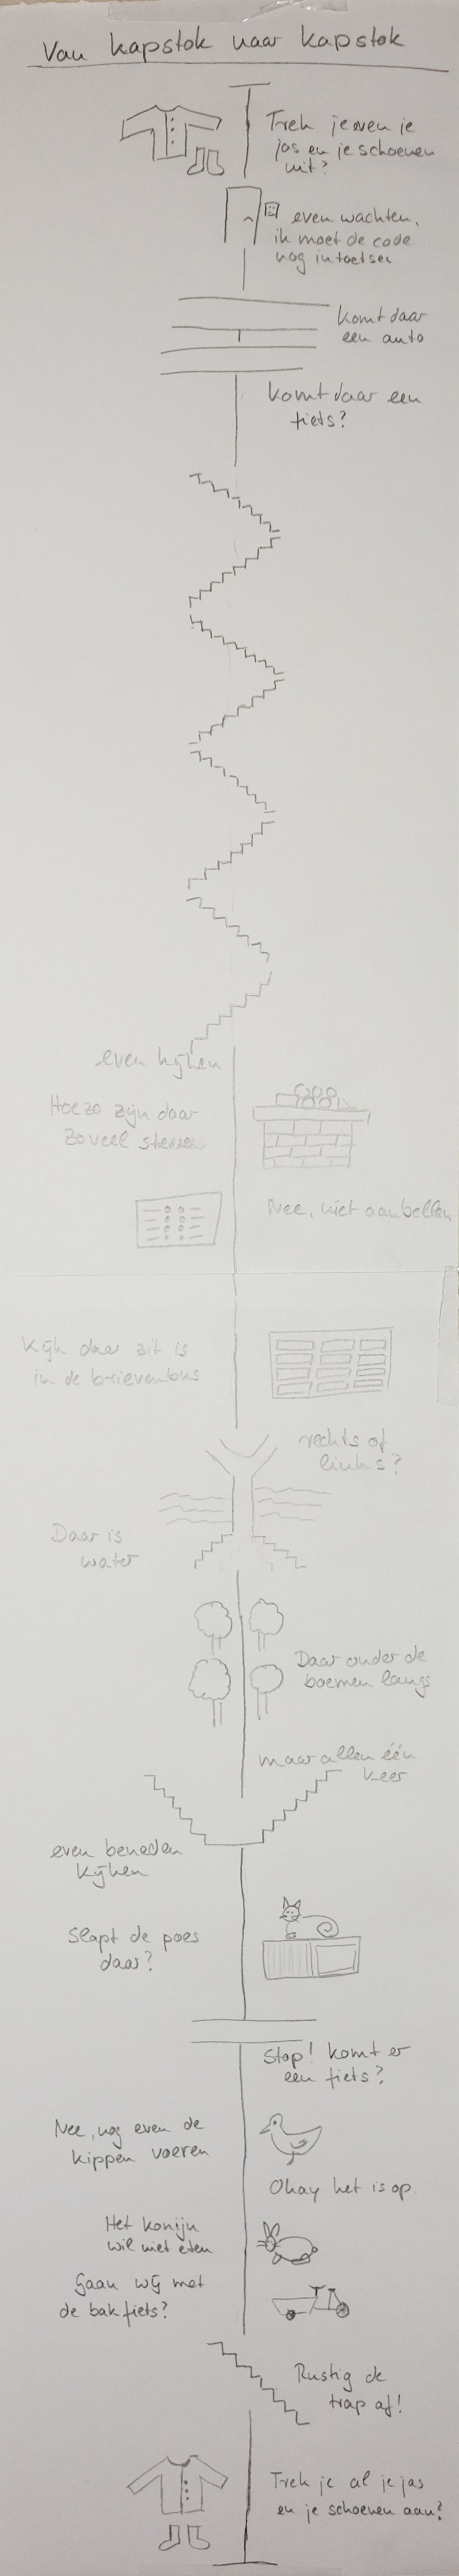 Van kapstok naar kapstok
Trek je even je
jas en je schoenen
uit?
even wachten,
ik moet de code
nog intoetsen
komt daar
een auto
komt daar een
fiets?
even kijken
Hoezo zijn daar
zoveel stenen..
Nee, niet aanbellen
Kijk daar zit is
in de brievenbus
rechts of
links?
Daar is
water
Daar onder de
boemen langs
maar allen één
keer
even beneden
kijken
Slapt de poes
daar?
Stop! komt er
een fiets?
Nee, nog even de
kippen voeren
Okay het is op.
Het konijn
wil niet eten
Gaan wij met
de bakfiets?
Rustig de
trap af!
Trek je al je jas
en je schoenen aan?